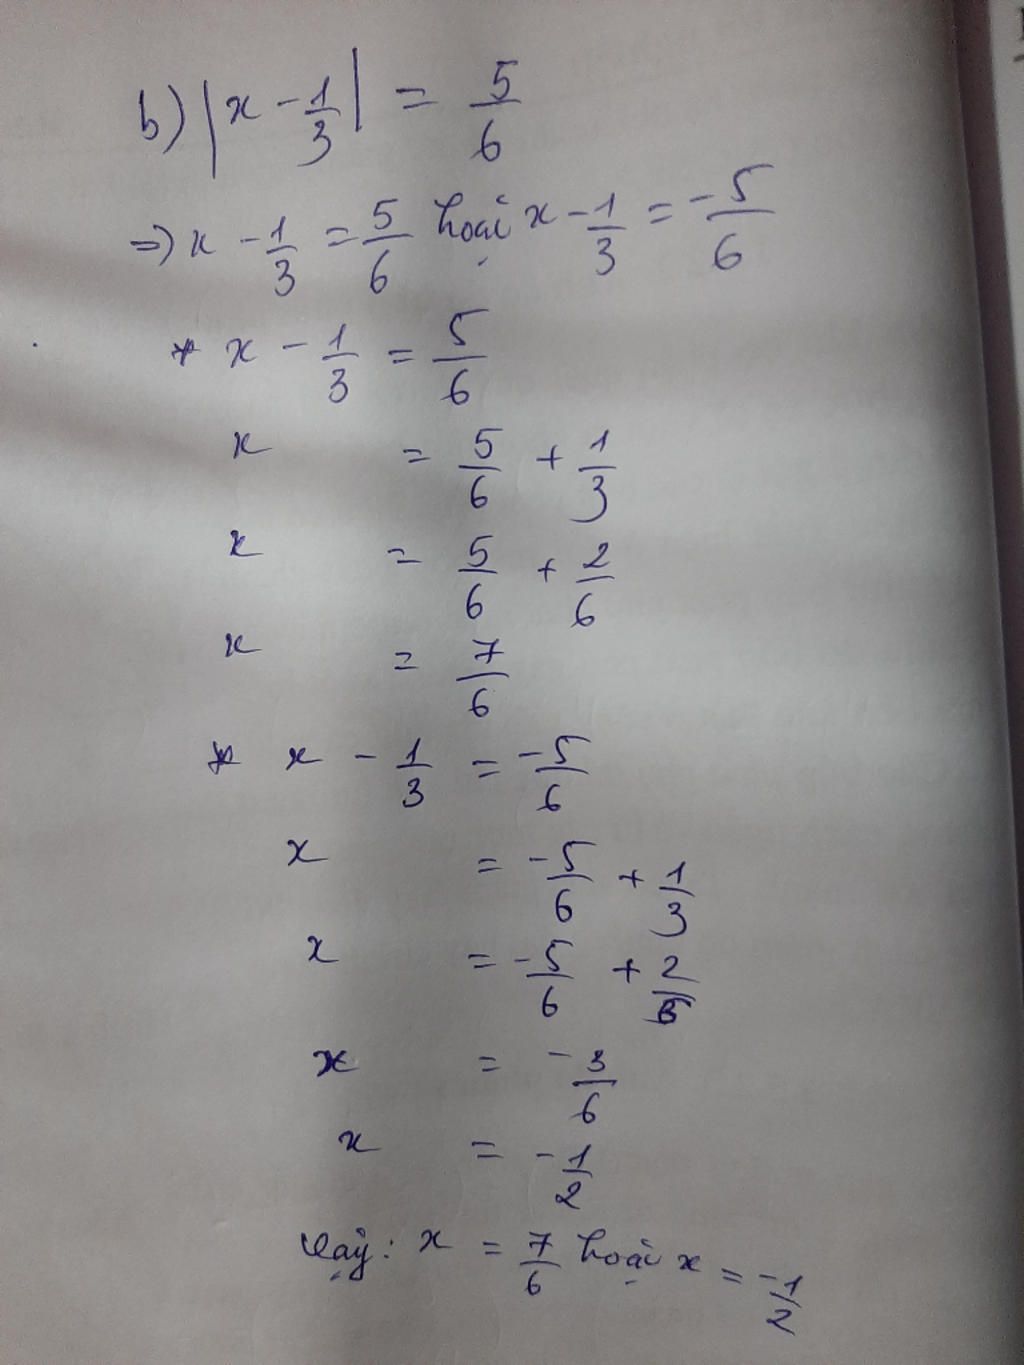 b) |x - 1/3| = 5/6
=> x - 1/3 = 5/6 hoặc x - 1/3 = -5/6
* x - 1/3 = 5/6
x = 5/6 + 1/3
x = 5/6 + 2/6
x = 7/6
* x - 1/3 = -5/6
x = -5/6 + 1/3
x = -5/6 + 2/6
x = -3/6
x = -1/2
Vậy: x = 7/6 hoặc x = -1/2